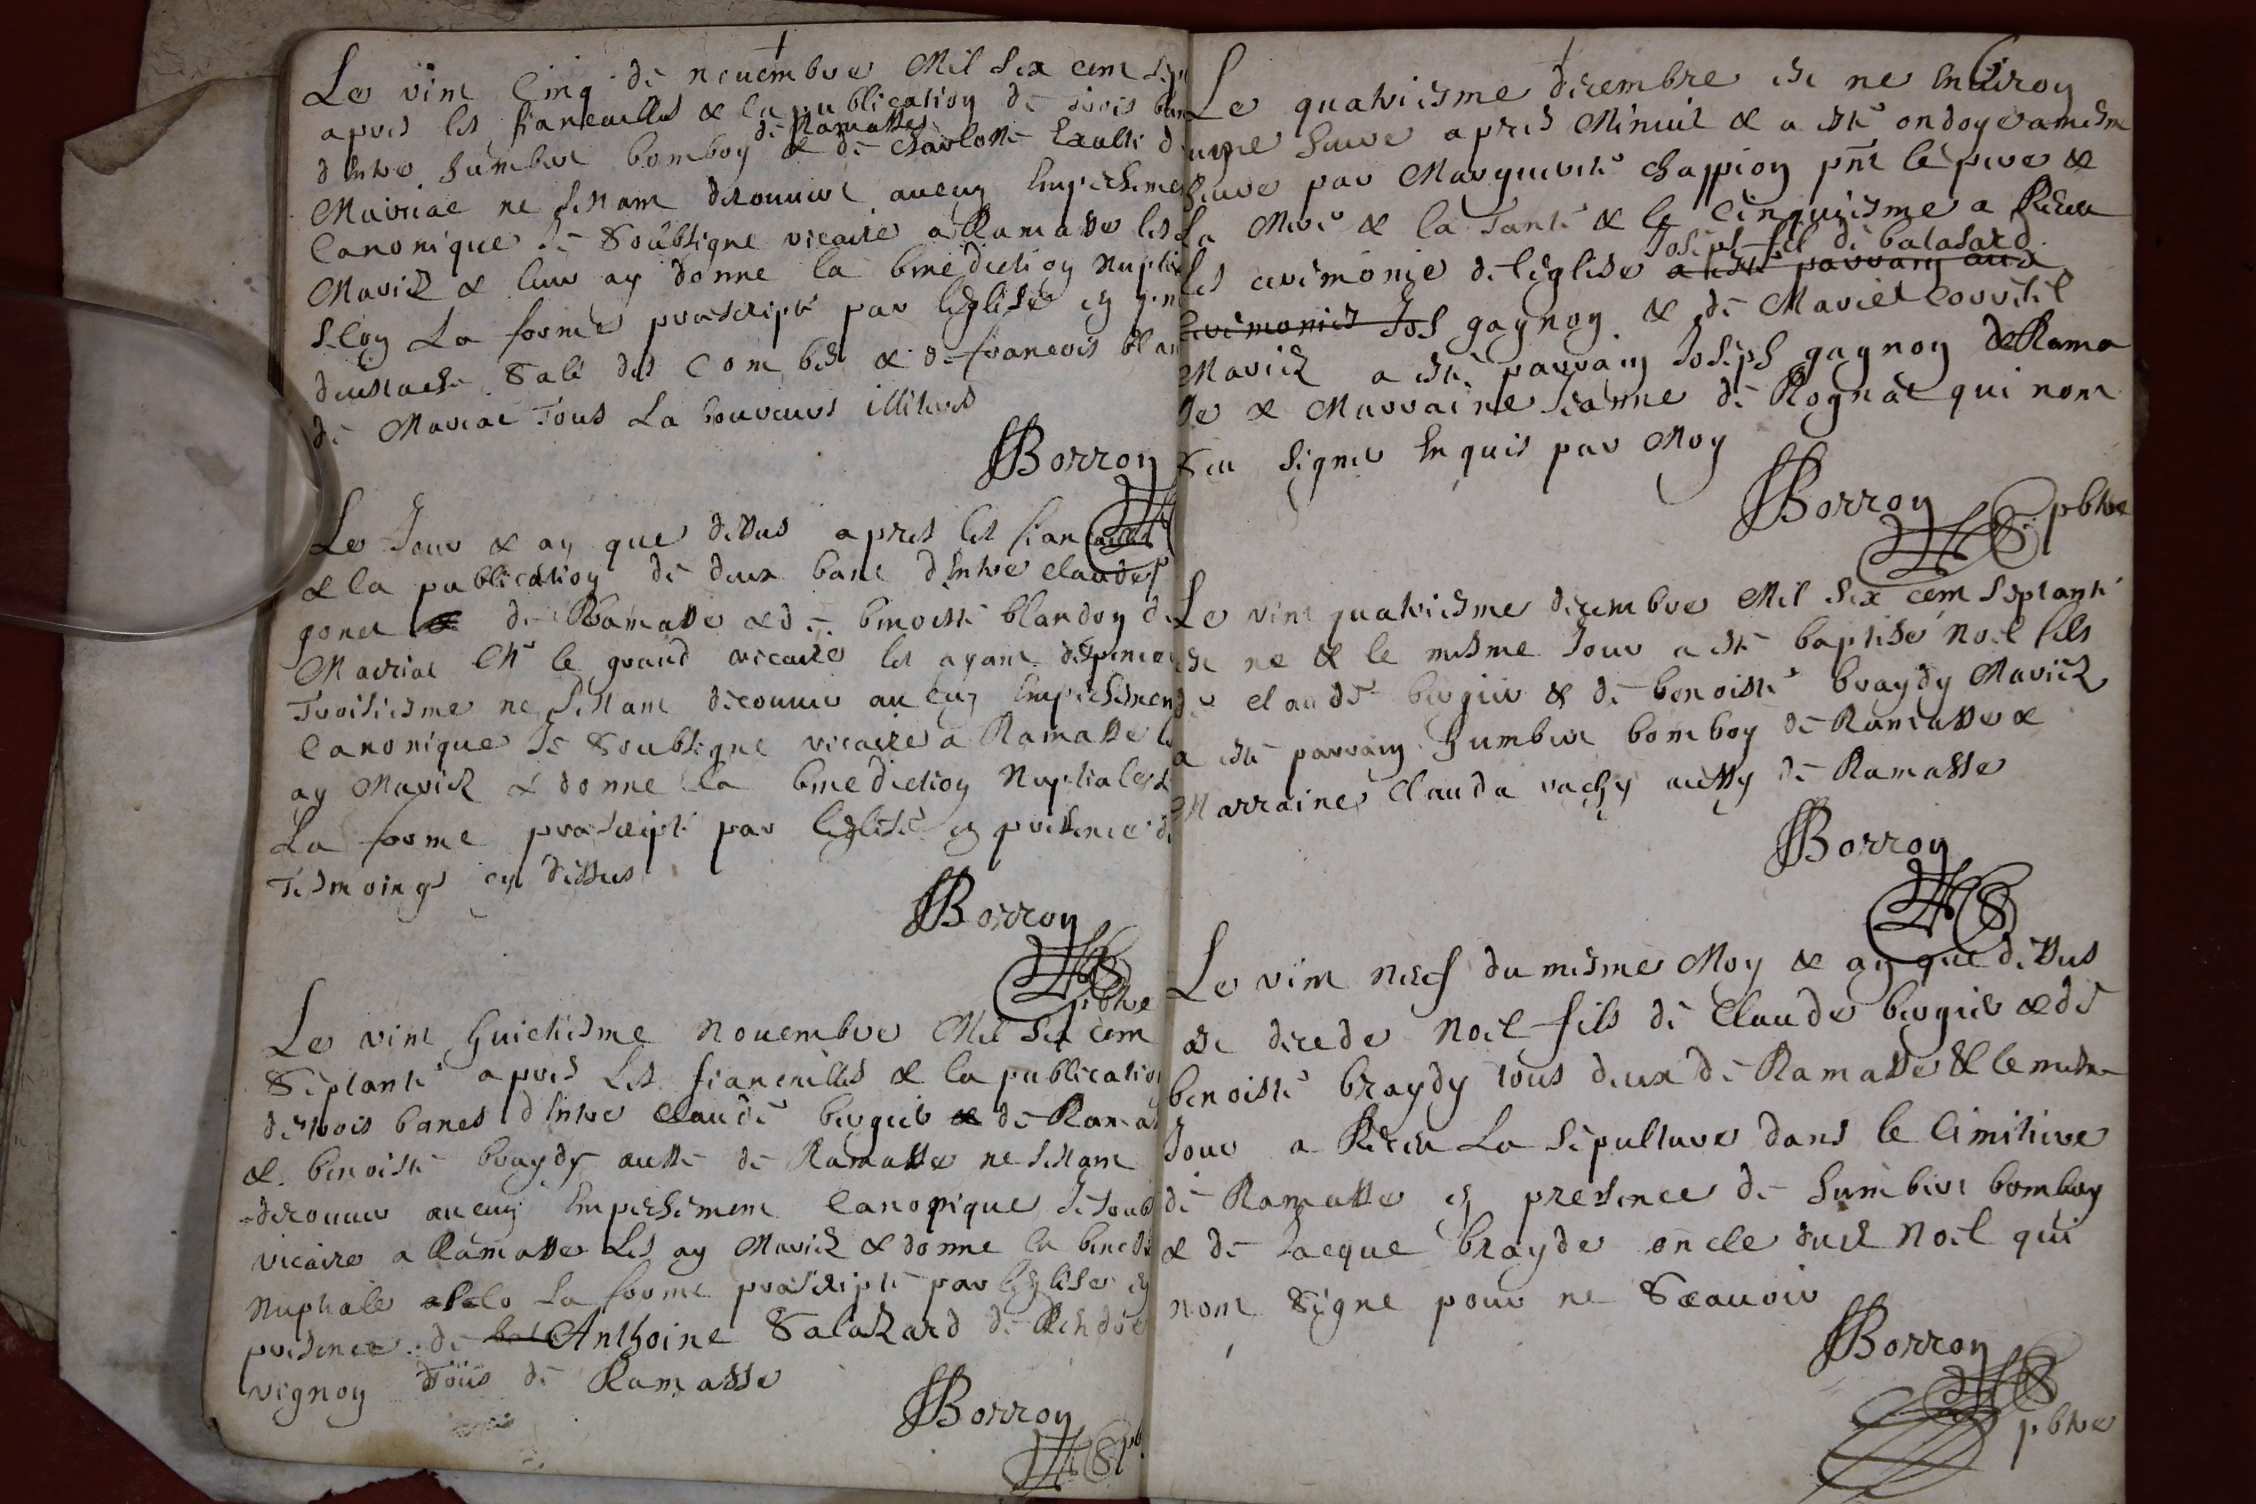 Le vint cinq de nouembre Mil Six cem sep
apres les fiancailles & la publication de trois ban
de Ramasse
dentre humbert bomboy & de charlotte
Mairiat ne sestant decouuert aucun empeschemen
Canonique Je Soubsigne vicaire a Ramasse les
Mariez & leur ay donne la benediction Nuptia
selon La forme prescripte par leglise en pre
deustache Salé des Combes & de francois blan
de Mairiat Tous La boureurs illiteres
Borron
Le Jour & an que dessus apres les fiancailles
& la publication de deux banc dentre claude
gonet de Ramasse & de benoiste blandon de
Mairiat Mr le grand vicaire les ayant dispence
Troisiesme ne sestant decouuer aucun empeschemen
Canonique Je Soubsigne vicaire a Ramasse les
ay Mariez & donne la benediction Nuptiale s
La forme prescripte par leglise en presence de
Tesmoings cy dessus
Borron
pbtre
Le vint huictiesme Nouembre Mil Six cem
Septante apres Les fiancailles & la publication
de trois bancs dentre Claude bergier & de Ramas
& benoiste braydy aussi de Ramasse ne sestant
decouuer aucung empeschemem Canonique Je soub
vicaire a Ramasse Les ay Mariez & donne la bened
Nuptiale selo La forme prescripte par leglise en
presence de Anthoine Salazard de
vignon Tous de Ramasse
Borron
pb
6
Le quatriesme decembre est ne enuiron
une heure apres Minuit & a esté ondoye a mesm
heure par Marguerite chappion pnt le pere &
La Mere & la Tante & le Cinquiesme a Receu
Joseph fil de balasard
les ceremonie de leglise a esté parrain aux
ceremonies Jos gagnon & de Marie Corretel
Mariez a esté parrain Joseph gagnon de Rama
sse & Marraine Jeanne de Rognat qui nont
Seu signer enquis par Moy
Borron pbtre
Le vint quatriesme decembre Mil Six cem Septante
est ne & le mesme Jour a esté baptisé Noel fils
de claude bergier & de benoiste braydy Mariez
a esté parrain humbert bomboy de Ramasse &
Marraine Clauda vachy aussy de Ramasse
Borron
Le vint neuf du mesme Moy & an que dessus
est decede Noel fils de Claude bergier & de
benoiste braydy tous deux de Ramasse & le mesme
Jour a Receu La Sepulture dans le Cimitiere
de Ramasse en presence de humbert bomboy
& de Jacque brayde oncle dud Noel qui
nont Signe pour ne Scauoir
Borron
pbtre